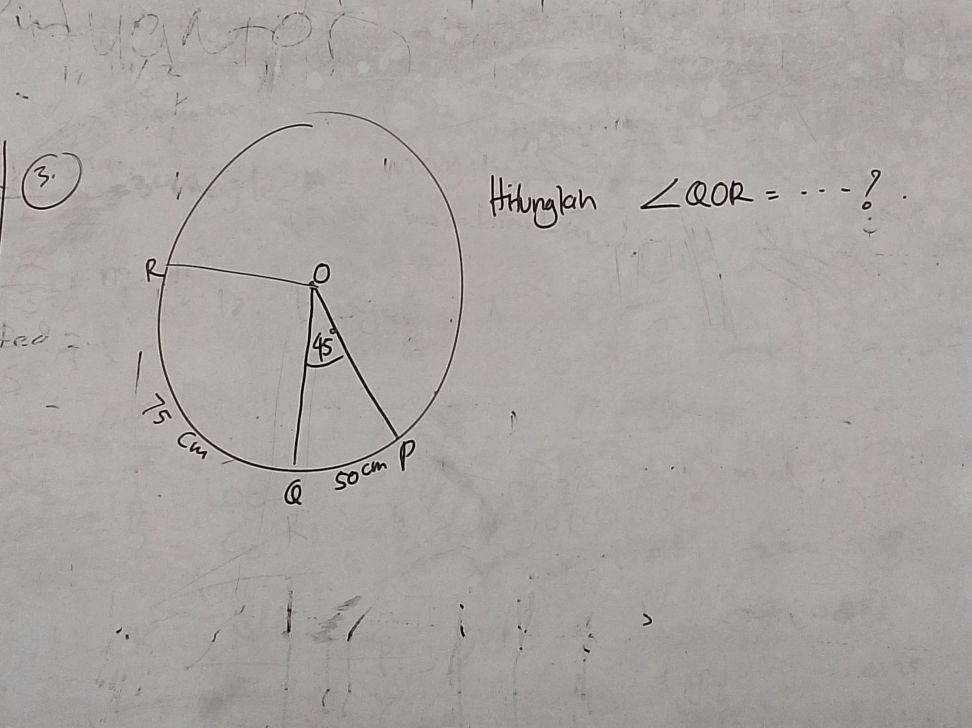 3. Hitunglah ∠QOR = ....?
R
O
45°
75 cm
50 cm P
Q